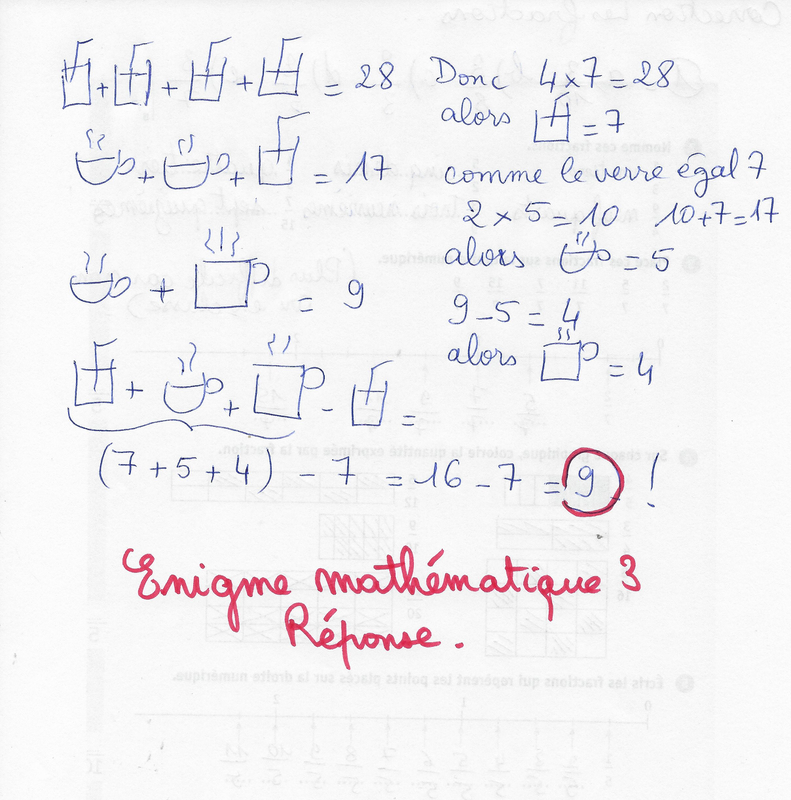 + + + = 28 Donc 4 x 7 = 28
alors = 7
+ + = 17 comme le verre égal 7
2 x 5 = 10 10 + 7 = 17
alors = 5
+ = 9 9 - 5 = 4
alors = 4
+ + - =
(7 + 5 + 4) - 7 = 16 - 7 = 9 !
Enigme mathématique 3
Réponse.